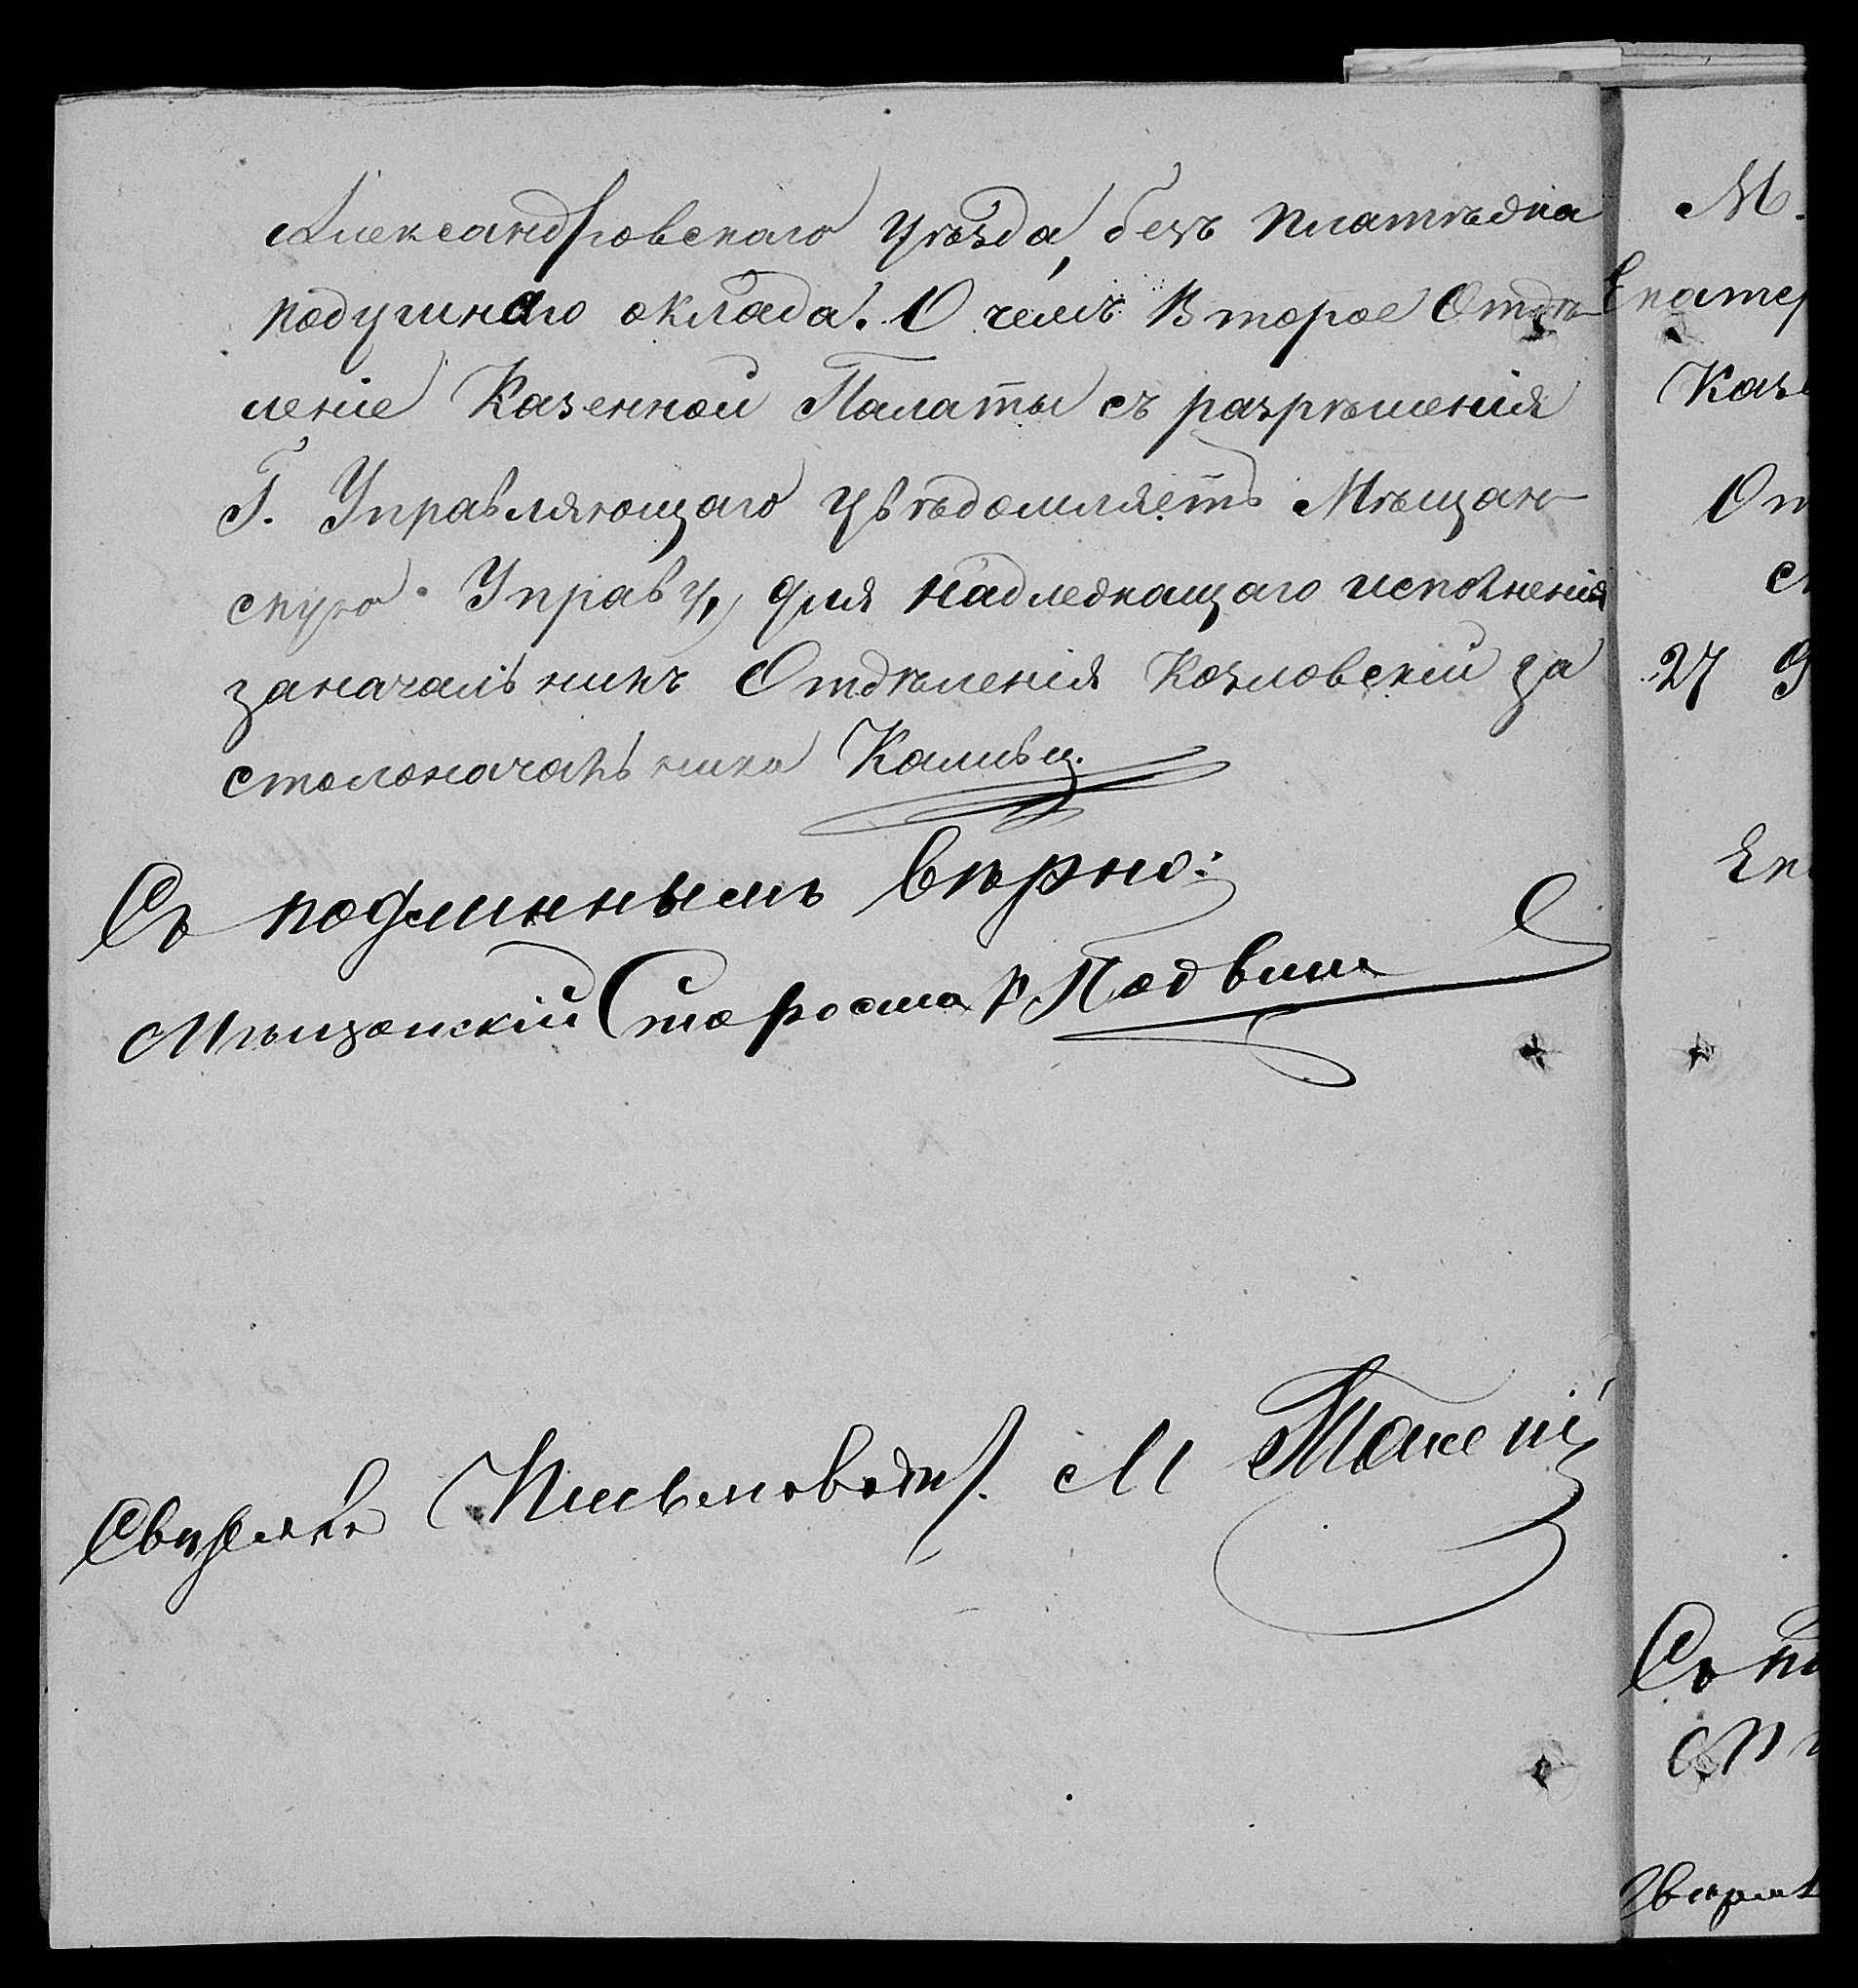 Александровскаго уѣзда, безъ платежа
подушнаго оклада. О чемъ Второе Отдѣ
леніе Казенной Палаты съ разрѣшенія
Г. Управляющаго увѣдомляетъ Мѣщан-
скую Управу, для надлежащаго исполненія
заначальникъ Отдѣленія Козловскій за
столоначальника
Съ подлиннымъ вѣрно:
Мѣщанскій Староста
Свѣрялъ Письмовод. М
М.
Екатер
Казе
От
27
Ек
Съ по